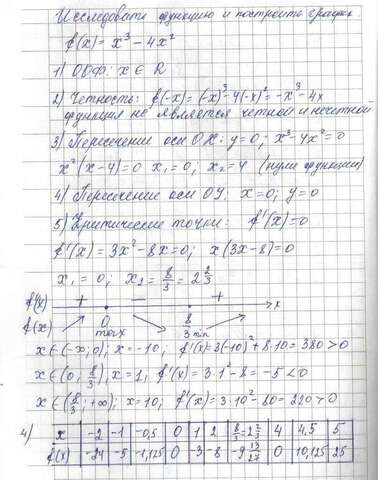 Исследовать функцию и построить график.
f(x) = x³ - 4x²
1) ООФ: x ∈ R
2) Чётность: f(-x) = (-x)³ - 4(-x)² = -x³ - 4x
функция не является чётной и нечётной
3) Пересечение оси OX: y=0; x³-4x²=0
x²(x-4)=0 x₁=0; x₂=4 (нули функции)
4) Пересечение оси OУ: x=0; y=0
5) Критические точки: f'(x)=0
f'(x) = 3x²-8x=0; x(3x-8)=0
x₁ = 0; x₂ = 8/3 = 2 2/3
f'(x) + - + x
f(x) 0 max 8/3 min
x∈(-∞;0); x=-10, f'(x)=3(-10)²+8·10=380>0
x∈(0; 8/3), x=1, f'(x)=3·1²-8=-5<0
x∈(8/3;+∞); x=10, f'(x)=3·10²-80=220>0
4) x -2 -1 -0,5 0 1 2 8/3=2 2/3 4 4,5 5
f(x) -24 -5 -1,125 0 -3 -8 -9 13/27 0 10,125 25